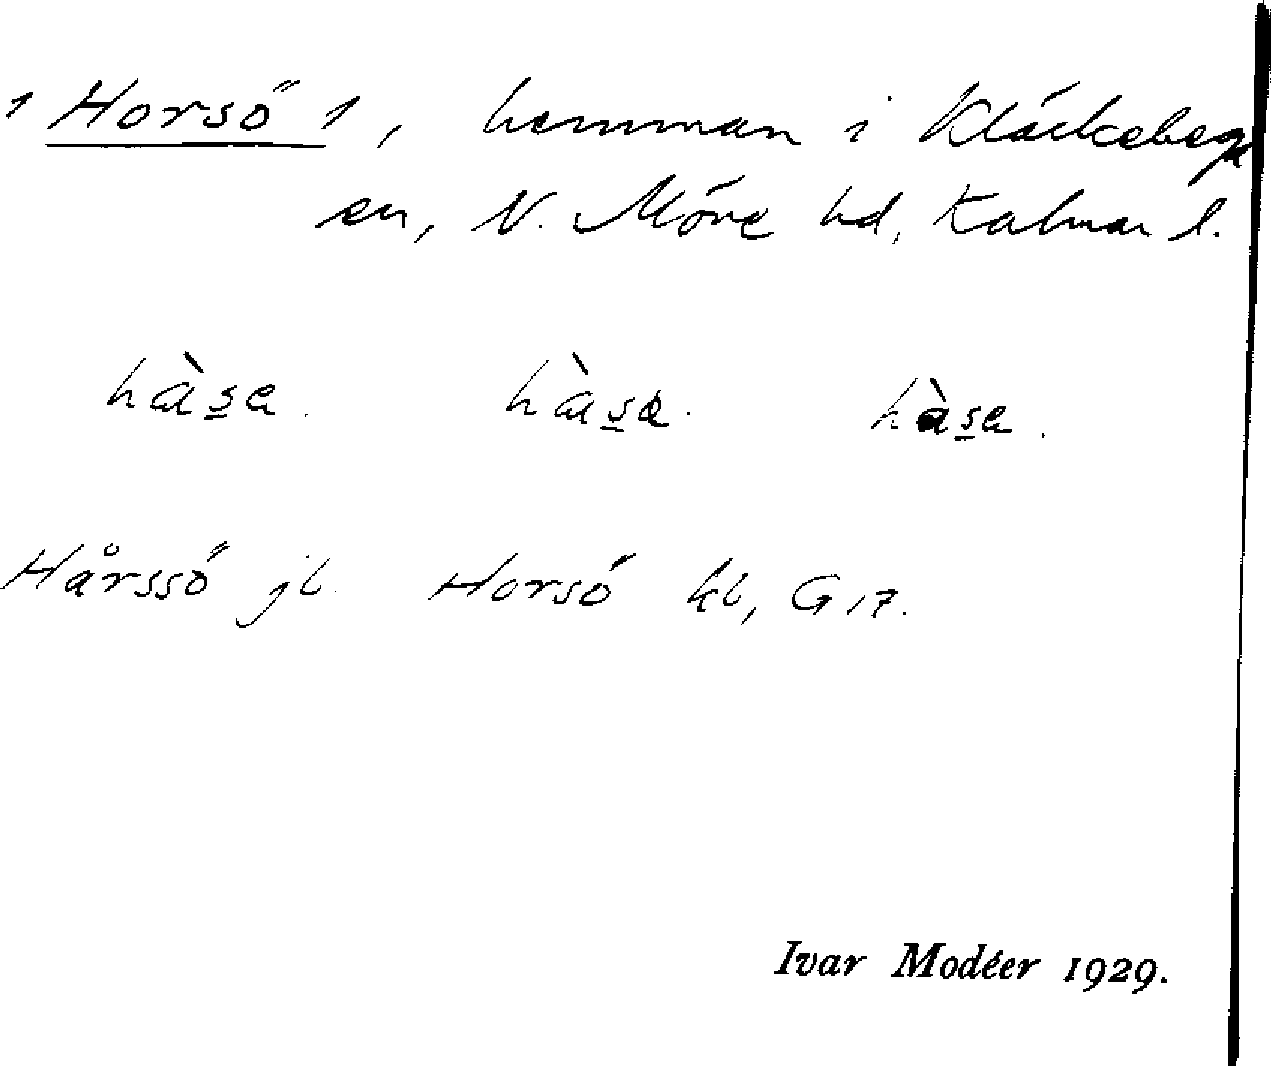 1 Horsö 1, hemman i Kläckeberga
sn, N. Möre hd, Kalmar l.
hàs̱a. hàs̱a. hàs̱a.
Hårssö jb. Horsö kb, G 17.
Ivar Modéer 1929.